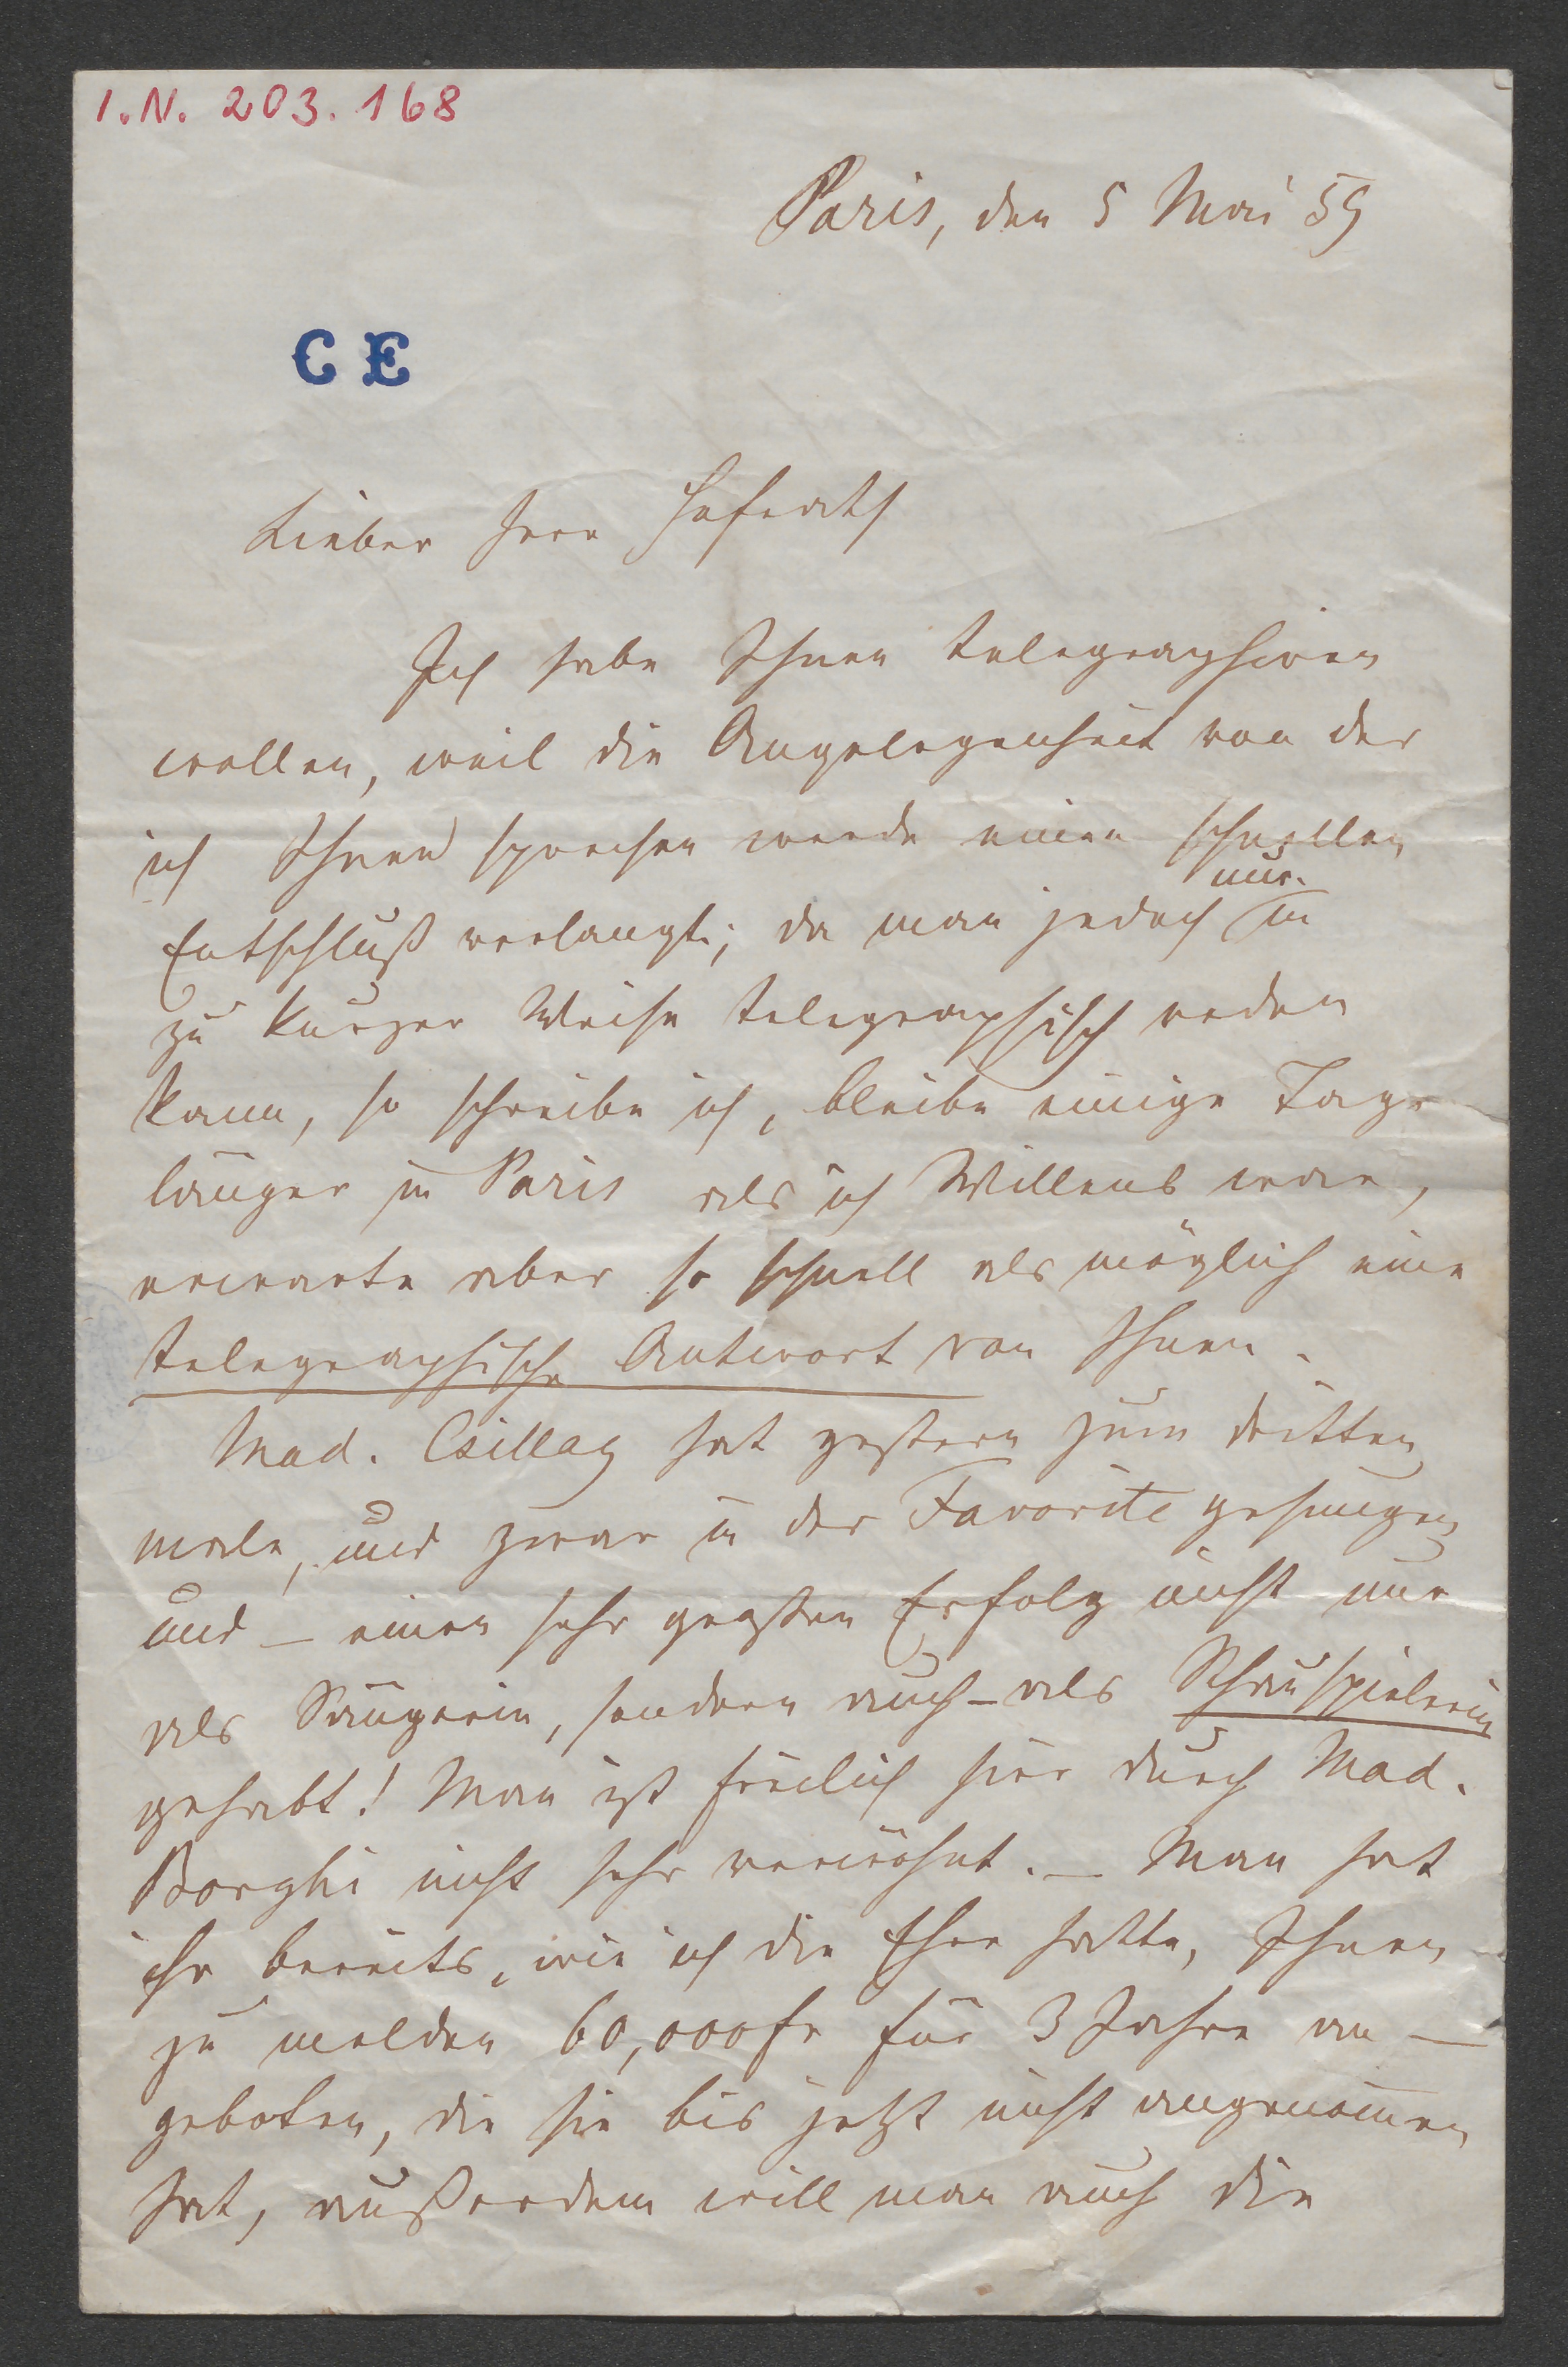 I.N. 203.168
Paris, den 5 Mai 59
C E
Lieber Herr Hofrath
Ich habe Ihnen telegraphiren
wollen, weil die Angelegenheit von der
ich Ihnen sprechen werde einen schnellen
nur
Entschluß verlangt; da man jedoch in
zu kurzer Weise telegraphisch reden
kann, so schreibe ich, bleibe einige Tage
länger in Paris als ich Willens war,
erwarte aber so schnell als möglich eine
telegraphische Antwort von Ihnen.
Mad. Csillag hat gestern zum dritten
male, und zwar in der Favorite gesungen
und – einen sehr großen Erfolg nicht nur
als Sängerin, sondern auch – als Schauspielerin
gehabt! Man ist freilich hier durch Mad.
Borghi nicht sehr verwöhnt. – Man hat
ihr bereits, wie ich die Ehre hatte, Ihnen
zu melden 60,000 fr für 3 Jahre an –
geboten, die sie bis jetzt nicht angenom̄en
hat, außerdem will man auch die